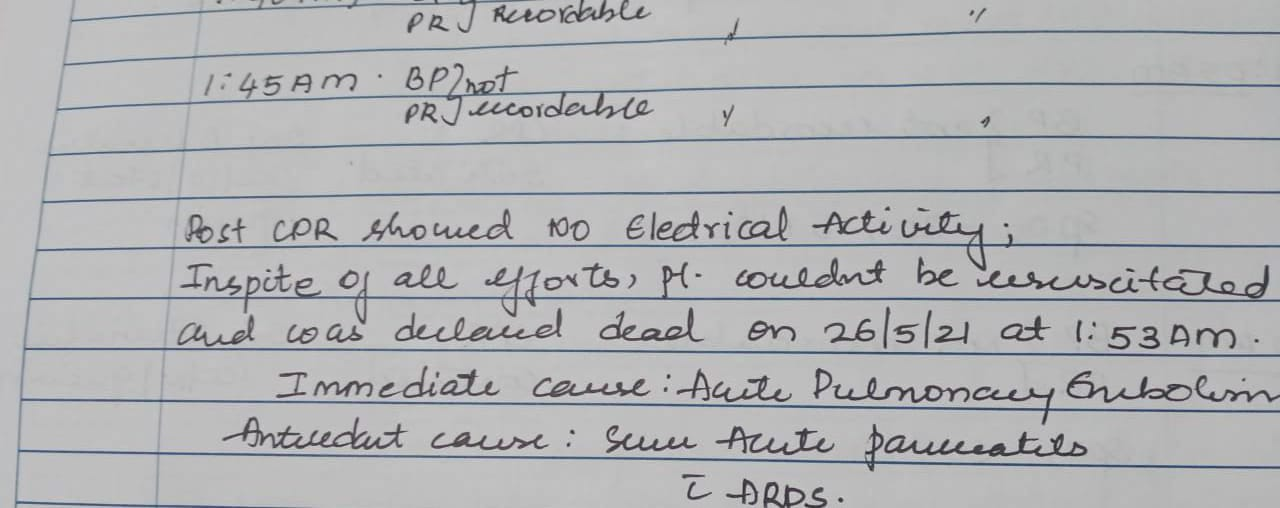 PR] Recordable "
1:45 AM . BP] not
PR] recordable " "
Post CPR showed no Electrical Activity;
Inspite of all efforts, pt. couldnt be resuscitated
and was declared dead on 26/5/21 at 1:53 AM.
Immediate cause: Acute Pulmonary Embolism
Antecedent cause: Severe Acute pancreatitis
c̄ ARDS.